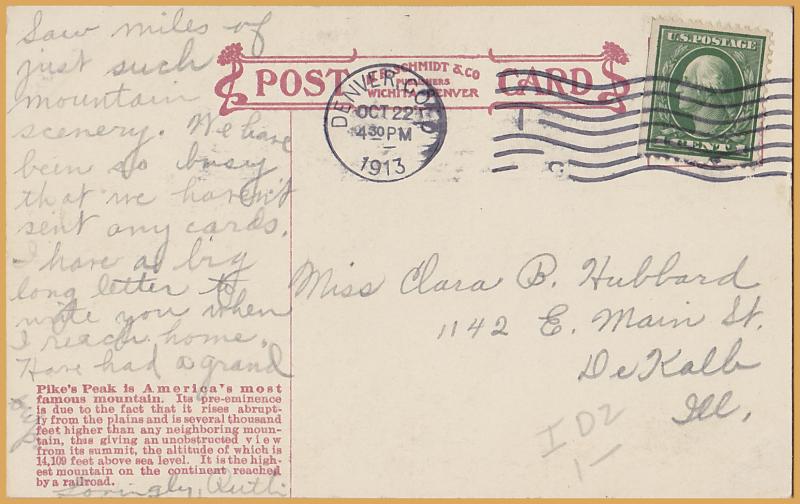 Saw miles of
just such
mountain
scenery. We have
been so busy
that we haven't
sent any cards.
I have a big
long letter to
write you when
I reach home.
Have had a grand
trip.
Lovingly, Ruth
POST CARD
SCHMIDT & CO
PUBLISHERS
WICHITA DENVER
DENVER, COLO.
OCT 22
4 30 PM
1913
U.S. POSTAGE
CENT
Miss Clara B. Hubbard
1142 E. Main St.
DeKalb
Ill.
ID2
1-
Pike's Peak is America's most
famous mountain. Its pre-eminence
is due to the fact that it rises abrupt-
ly from the plains and is several thousand
feet higher than any neighboring moun-
tain, thus giving an unobstructed view
from its summit, the altitude of which is
14,109 feet above sea level. It is the high-
est mountain on the continent reached
by a railroad.